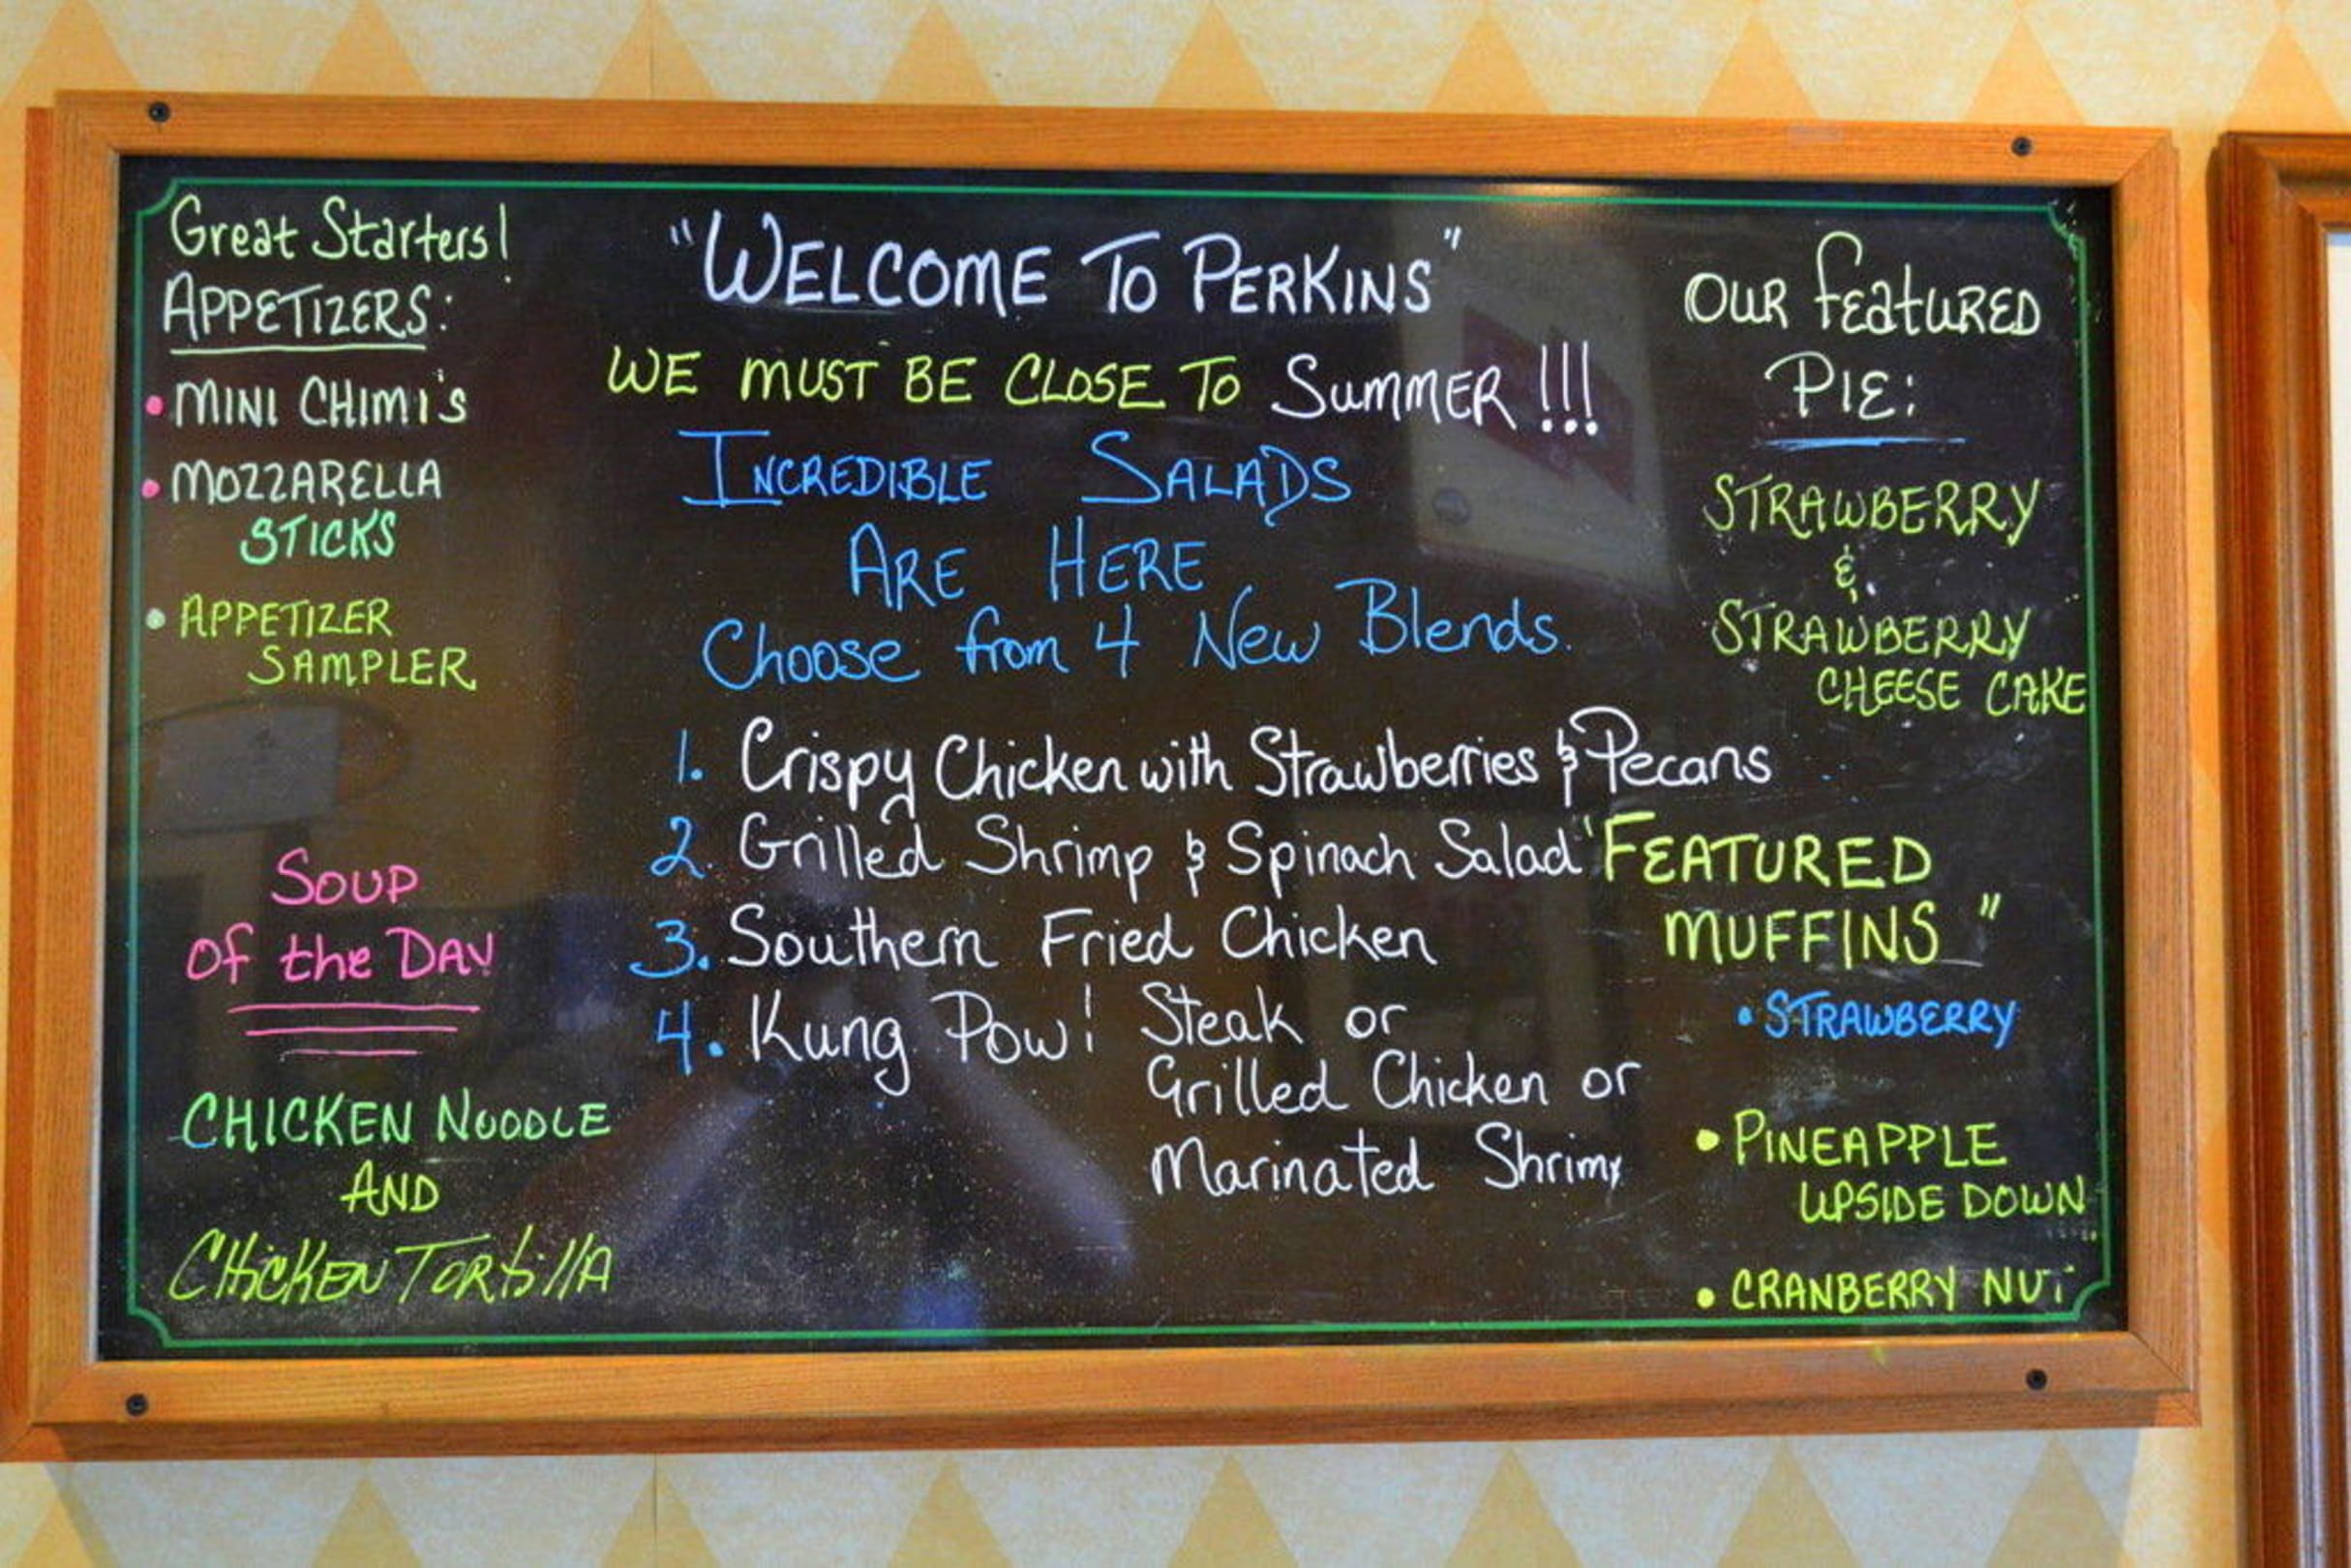 Great Starters!
APPETIZERS:
• MINI CHIMI'S
• MOZZARELLA
STICKS
• APPETIZER
SAMPLER
SOUP
OF the DAY
CHICKEN NOODLE
AND
CHICKEN TORTILLA
"WELCOME TO PERKINS"
WE MUST BE CLOSE TO SUMMER!!!
INCREDIBLE SALADS
ARE HERE
Choose from 4 New Blends.
1. Crispy Chicken with Strawberries & Pecans
2. Grilled Shrimp & Spinach Salad
3. Southern Fried Chicken
4. Kung Pow! Steak or
Grilled Chicken or
Marinated Shrimp
OUR FEATURED
PIE:
STRAWBERRY
&
STRAWBERRY
CHEESE CAKE
"FEATURED
MUFFINS"
• STRAWBERRY
• PINEAPPLE
UPSIDE DOWN
• CRANBERRY NUT